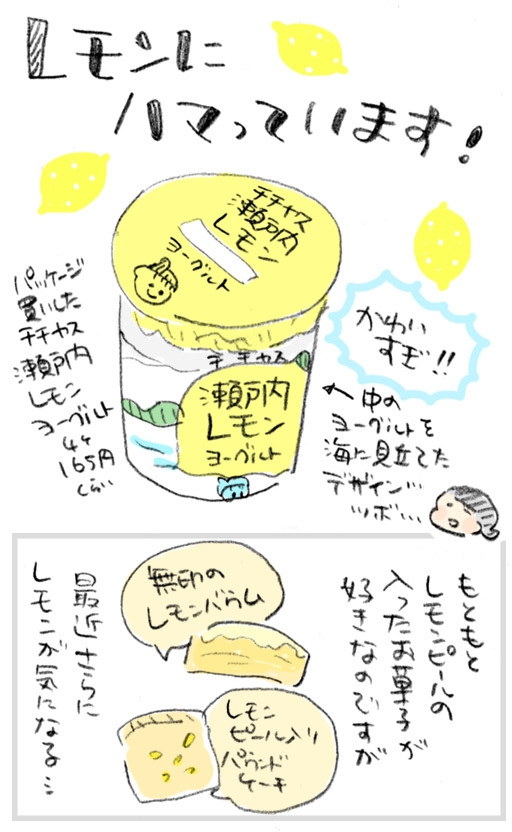 レモンに
ハマっています!
チチヤス
瀬戸内
レモン
ヨーグルト
パッケージ
買いした
チチヤス
瀬戸内
レモン
ヨーグルト
4ケ
165円
くらい
チチヤス
瀬戸内
レモン
ヨーグルト
かわい
すぎ!!
←中の
ヨーグルトを
海に見立てた
デザイン…
ツボ…
もともと
レモンピールの
入ったお菓子が
好きなのですが
無印の
レモンバウム
レモン
ピール入り
パウンド
ケーキ
最近さらに
レモンが気になる…